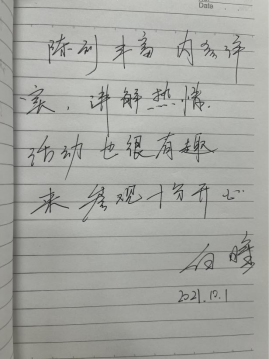 Date
陈列丰富 内容详
实，讲解热情
活动也很有趣
来参观十分开心
2021.10.1